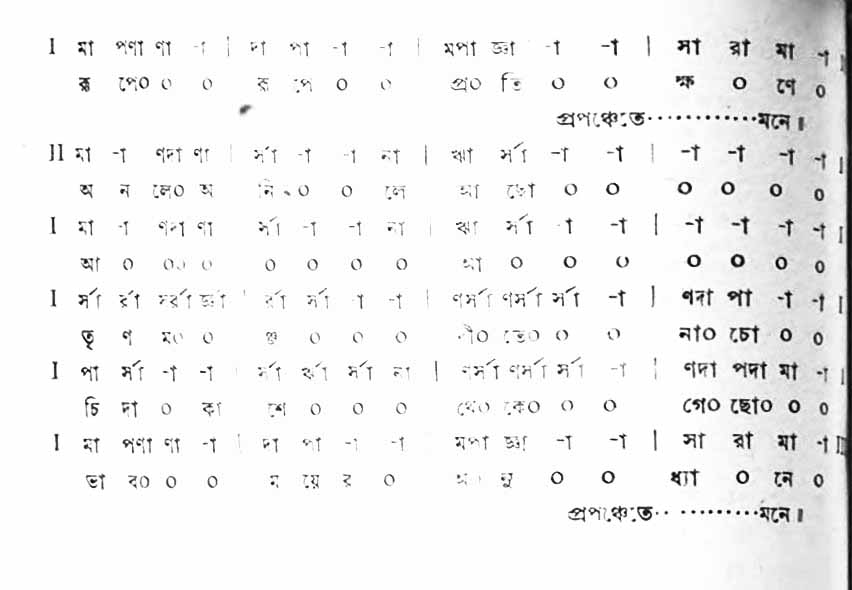 I মা পণা ণা -া | দা পা -া -া | মপা জ্ঞা -া -া | সা রা মা -া I
রূ পে০ ০ ০ রূ পে ০ ০ প্র০ তি ০ ০ ক্ষ ০ ণে ০
প্রপঞ্চেতে············মনে॥
II মা -া ণদা ণা | র্সা -া -া না | ঋা র্সা -া -া | -া -া -া -া I
অ ন লে০ অ নি ০ ০ লে আ ছো ০ ০ ০ ০ ০ ০
I মা -া ণদা ণা র্সা -া -া না | ঋা র্সা -া -া | -া -া -া -া I
আ ০ ০০ ০ ০ ০ ০ ০ আ ০ ০ ০ ০ ০ ০ ০
I র্সা র্রা র্জ্ঞা | র্রা র্সা -া -া | ণর্সা ণর্সা র্সা -া | ণদা পা -া -া I
তৃ ণ ম০ ০ ঞ্জ ০ ০ ০ রী০ তে০ ০ ০ না০ চো ০ ০
I পা র্সা -া -া | র্সা র্ঋা র্সা না | ণর্সা ণর্সা র্সা -া | ণদা পদা মা -া I
চি দা ০ কা শে ০ ০ ০ থে০ কে০ ০ ০ গে০ ছো০ ০ ০
I মা পণা ণা -া | দা পা -া -া | মপা জ্ঞা -া -া | সা রা মা -া II
ভা ব০ ০ ০ ম য়ে র ০ নু ০ ০ ধ্যা ০ নে ০
প্রপঞ্চেতে·· ·········মনে॥